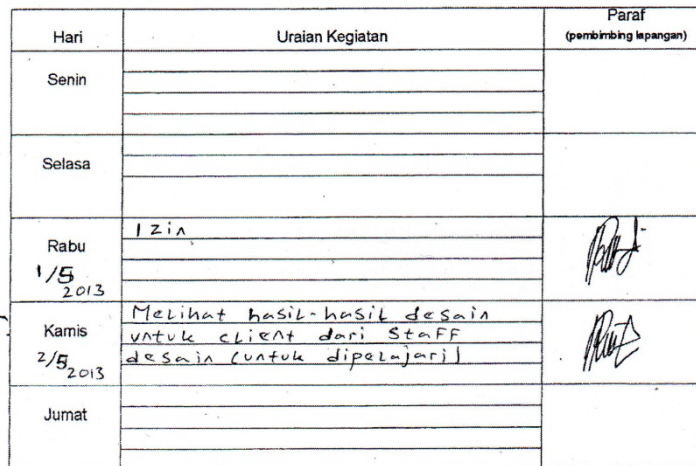 Hari Uraian Kegiatan Paraf
(pembimbing lapangan)
Senin
Selasa
Rabu Izin
1/5
2013
Kamis Melihat hasil-hasil desain
untuk client dari staff
2/5 desain (untuk dipelajari)
2013
Jumat